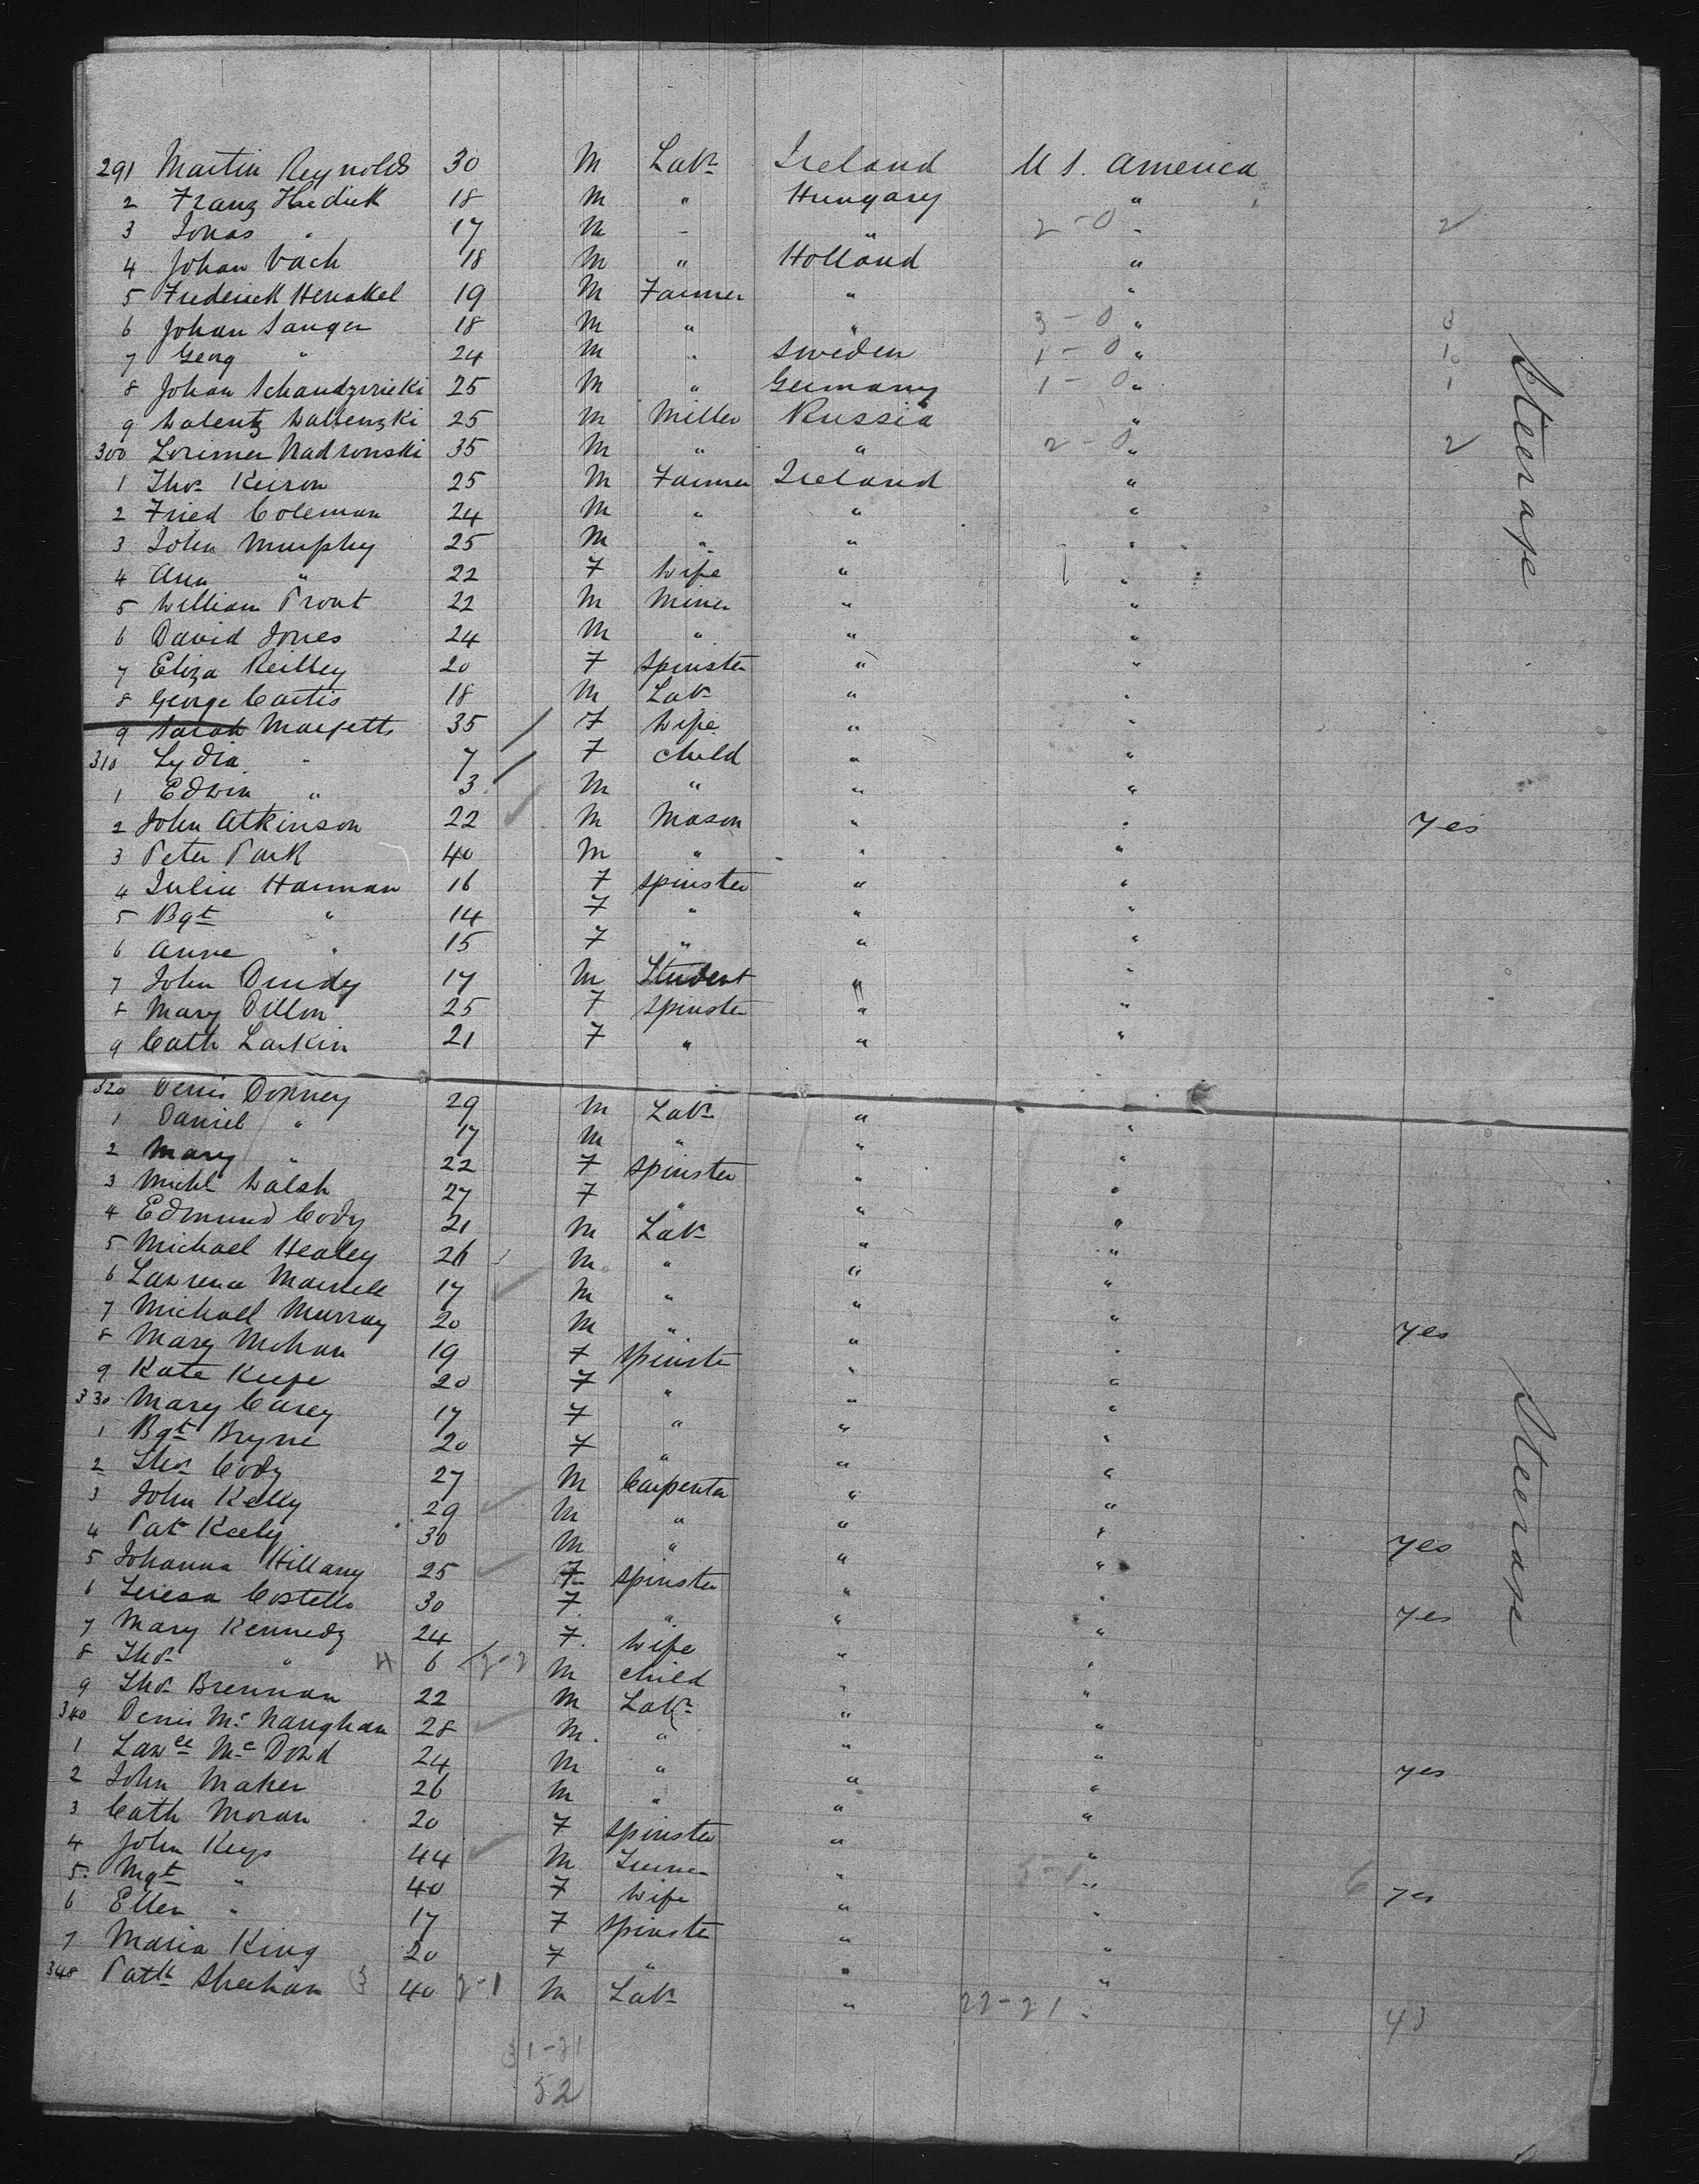 291 Martin Reynolds 30 M Labr Ireland U S. America
2 Franz Hudick 18 M " Hungary "
3 Jonas " 17 M " " 2-0 " 2
4 Johan Vach 18 M " Holland "
5 Frederick Henakel 19 M Farmer " "
6 Johan Sanger 18 M " " 3-0 " 3
7 Georg " 24 M " Sweden 1-0 " 1
8 Johan 25 M " Germany 1-0 " 1
9 25 M Miller Russia "
300 Lorimer 35 M " " 2-0 " 2
1 Thos Keiron 25 M Farmer Ireland "
2 Fried Coleman 24 M " " "
3 John Murphy 25 M " " "
4 Ann " 22 F Wife " "
5 William Prout 22 M Miner " "
6 David Jones 24 M " " "
7 Eliza Reilley 20 F Spinster " "
8 George Curtis 18 M Labr " "
9 Sarah Margetts 35 F Wife " "
310 Lydia " 7 F child " "
1 Edwin " 3 M " " "
2 John Atkinson 22 M Mason " " yes
3 Peter Park 40 M " " "
4 Julia Harman 16 F Spinster " "
5 Bgt " 14 F " " "
6 Anne " 15 F " " "
7 John Dundy 17 M Student " "
8 Mary Dillon 25 F Spinster " "
9 Cath Larkin 21 F " " "
320 Denis Dorney 29 M Labr " "
1 Daniel " 17 M " " "
2 Mary " 22 F Spinster " "
3 Michl Walsh 27 F " " "
4 Edmund Cody 21 M Labr " "
5 Michael Healey 26 M " " "
6 Lawrence 17 M " " "
7 Michael Murray 20 M " " " yes
8 Mary Mohan 19 F Spinster " "
9 Kate Keefe 20 F " " "
330 Mary Carey 17 F " " "
1 Bgt Bryne 20 F " " "
2 Thos Cody 27 M Carpenter " "
3 John Kelly 29 M " " "
4 Pat Keely 30 M " " " yes
5 Johanna Hillary 25 F Spinster " "
6 Teresa Costello 30 F " " " yes
7 Mary Kennedy 24 F. Wife " "
8 Thos " 6 2-2 M child " "
9 Thos Brennan 22 M Labr " "
340 Denis McNaughan 28 M. " " "
1 Lawce McDowd 24 M " " " yes
2 John Maher 26 M " " "
3 Cath Moran 20 F Spinster " "
4 John Keys 44 M " "
5 Mgt " 40 F Wife " 5-1 " 6 yes
6 Ellen " 17 F Spinster " "
7 Maria King 20 F " " "
348 Patk Sheehan 3 40 2-1 M Labr " "
22-21 43
31-21
52
Steerage
Steerage